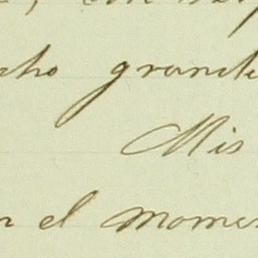 cho grande
Mis
n el momen